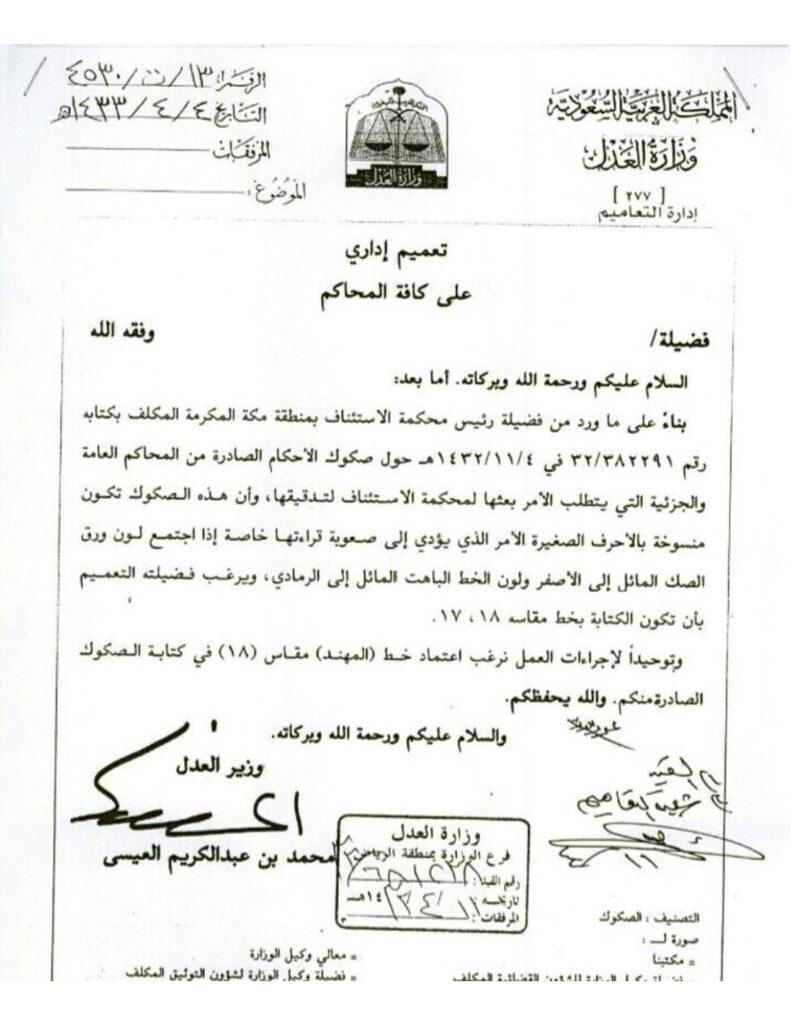 المملكة العربية السعودية
وزارة العدل
[ ٢٧٧ ]
إدارة التعاميم
وزارة العدل
الرقم: ١٣/ت/٤٥٣٠
التاريخ ١٤٣٣/٤/٤هـ
المرفقات
الموضوع:
تعميم إداري
على كافة المحاكم
فضيلة/ وفقه الله
السلام عليكم ورحمة الله وبركاته. أما بعد:
بناءً على ما ورد من فضيلة رئيس محكمة الاستئناف بمنطقة مكة المكرمة المكلف بكتابه
رقم ٣٢/٣٨٢٢٩١ في ١٤٣٢/١١/٤هـ حول صكوك الأحكام الصادرة من المحاكم العامة
والجزئية التي يتطلب الأمر بعثها لمحكمة الاستئناف لتدقيقها، وأن هذه الصكوك تكون
منسوخة بالأحرف الصغيرة الأمر الذي يؤدي إلى صعوبة قراءتها خاصة إذا اجتمع لون ورق
الصك المائل إلى الأصفر ولون الخط الباهت المائل إلى الرمادي، ويرغب فضيلته التعميم
بأن تكون الكتابة بخط مقاسه ١٨، ١٧.
وتوحيداً لإجراءات العمل نرغب اعتماد خط (المهند) مقاس (١٨) في كتابة الصكوك
الصادرة منكم. والله يحفظكم.
والسلام عليكم ورحمة الله وبركاته.
وزير العدل
محمد بن عبدالكريم العيسى
وزارة العدل
فرع الوزارة بمنطقة الرياض
رقم القيد:
تاريخه: ١٤هـ
المرفقات:
التصنيف: الصكوك
صورة لـ :
مكتبنا
معالي وكيل الوزارة
فضيلة وكيل الوزارة للشؤون القضائية المكلف
فضيلة وكيل الوزارة لشؤون التوثيق المكلف